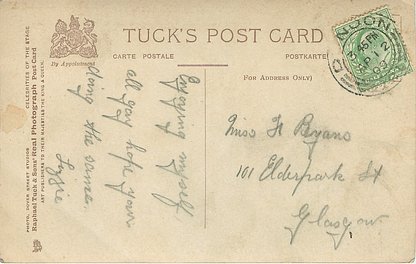 TUCK'S POST CARD
CARTE POSTALE
POSTKARTE
By Appointment
(FOR ADDRESS ONLY)
CELEBRITIES OF THE STAGE
Raphael Tuck & Sons' Real Photograph Post Card
ART PUBLISHERS TO THEIR MAJESTIES THE KING & QUEEN.
PHOTO, DOVER STREET STUDIOS
DUNOON
Enjoying myself
all you hope your
doing the same.
Lizzie
Miss H Ryans
101 Elderpark St
Glasgow.